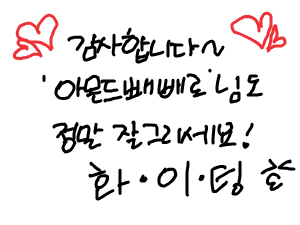 감사합니다~
'아몬드빼빼로'님도
정말 잘그리세요!
화·이·팅